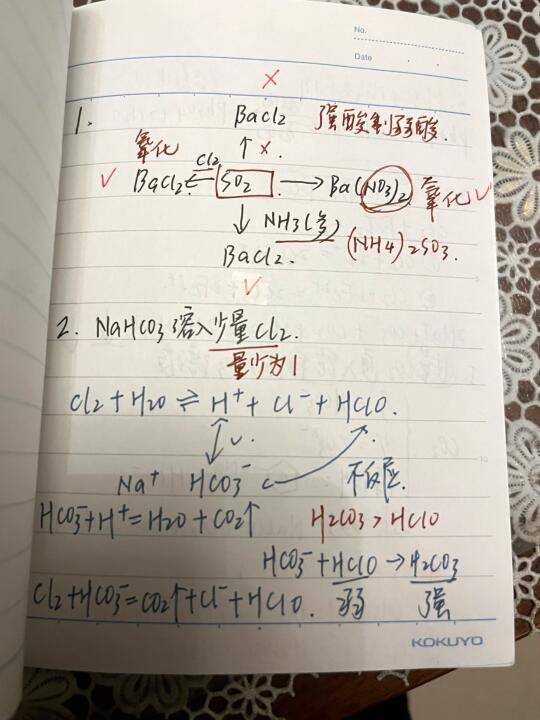 No.
Date
×
1. BaCl2 强酸制弱酸.
氧化 ↑ ×.
√ BaCl2 ←Cl2 SO2 → Ba(NO3)2 氧化 √
↓ NH3(多) (NH4)2SO3.
BaCl2.
√
2. NaHCO3溶入少量Cl2.
量少为1
Cl2 + H2O ⇌ H+ + Cl- + HClO.
√.
Na+ HCO3- 不反应.
HCO3- + H+ = H2O + CO2↑ H2CO3 > HClO
HCO3- + HClO → H2CO3
Cl2 + HCO3- = CO2↑ + Cl- + HClO. 弱 强
KOKUYO